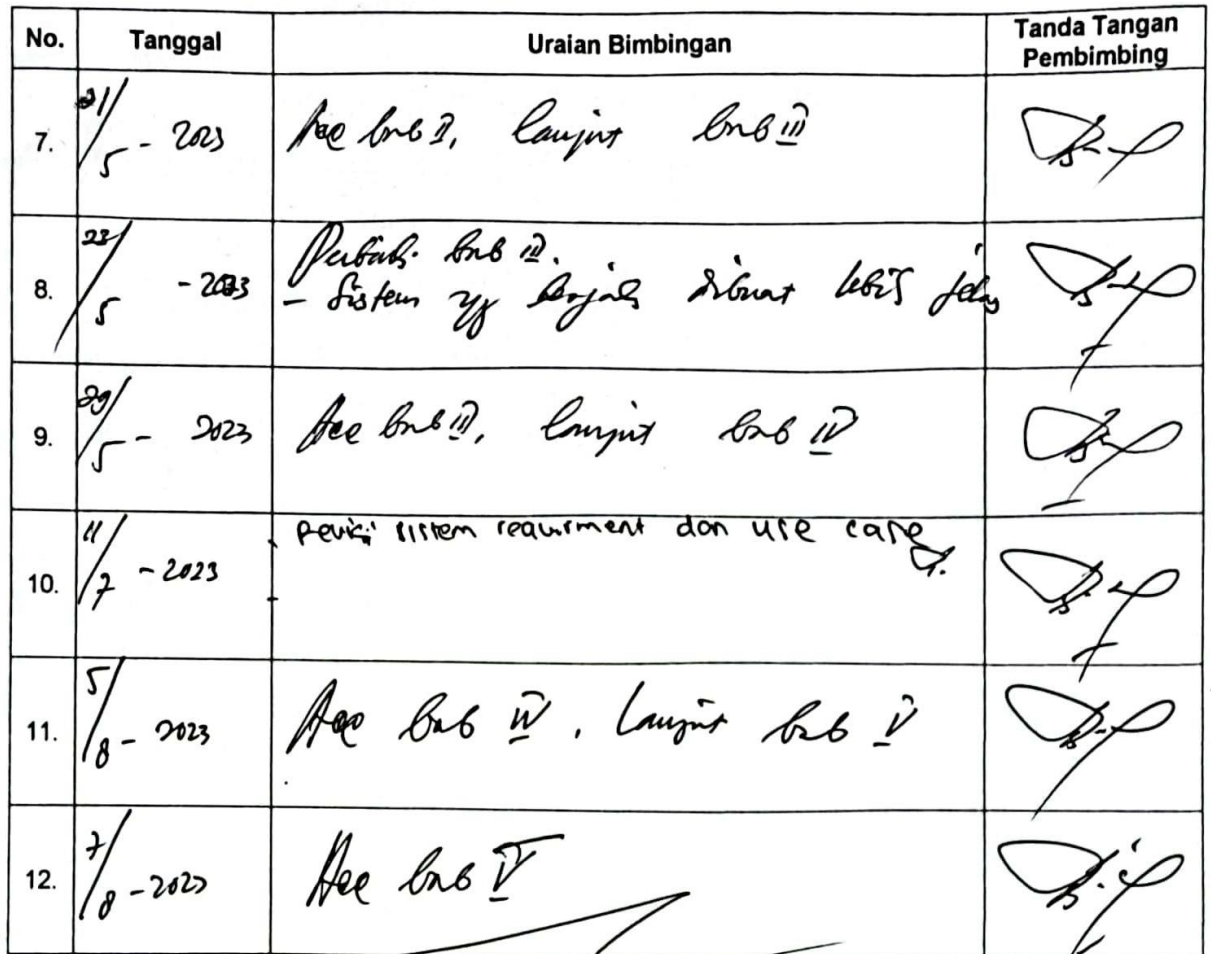 No. Tanggal Uraian Bimbingan Tanda Tangan Pembimbing
7. 21/5 - 2023 Acc bab II, lanjut bab III
8. 23/5 - 2023 Perbaiki bab III.
- Sistem yg berjalan dibuat lebih jelas
9. 29/5 - 2023 Acc bab III, lanjut bab IV
10. 11/7 - 2023 - Revisi sistem requirment dan use case
11. 5/8 - 2023 Acc bab IV, lanjut bab V
12. 7/8 - 2023 Acc bab V